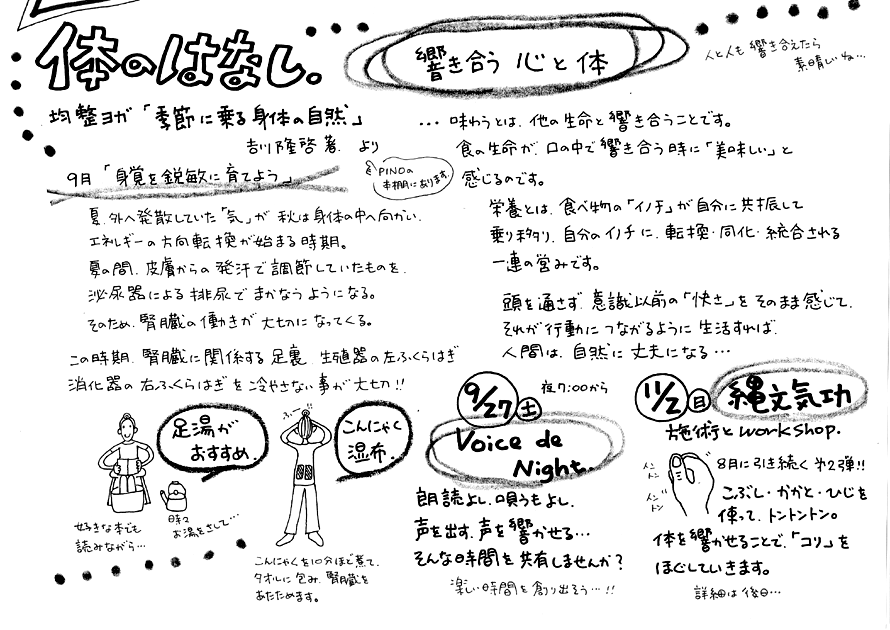 体のはなし.
均整ヨガ「季節に乗る身体の自然」
吉川隆啓著. より
PINOの
本棚にあります
9月「身覚を鋭敏に育てよう」
夏、外へ発散していた「気」が 秋は身体の中へ向かい、
エネルギーの方向転換が始まる時期。
夏の間、皮膚からの発汗で調節していたものを、
泌尿器による排尿でまかなうようになる。
そのため、腎臓の働きが大切になってくる。
この時期、腎臓に関係する足裏、生殖器の左ふくらはぎ
消化器の右ふくらはぎを冷やさない事が大切!!
足湯が
おすすめ.
好きな本でも
読みながら…
時々
お湯をさして…
こんにゃく
湿布.
こんにゃくを10分ほど煮て、
タオルに包み、腎臓を
あたためます。
響き合う 心と体
人と人も 響き合えたら
素晴しいね…
… 味わうとは、他の生命と響き合うことです。
食の生命が、口の中で響き合う時に「美味しい」と
感じるのです。
栄養とは、食べ物の「イノチ」が自分に共振して
乗り移り、自分のイノチに、転換・同化・統合される
一連の営みです。
頭を通さず、意識以前の「快さ」をそのまま感じて、
それが行動につながるように生活すれば、
人間は、自然に丈夫になる…
9/27 土 夜7:00から
Voice de
Night.
朗読よし、唄うもよし、
声を出す、声を響かせる…
そんな時間を共有しませんか?
楽しい時間を創り出そう…!!
11/2 日 縄文気功
施術とworkshop.
8月に引き続く 第2弾!!
トントン
トントン
こぶし・かかと・ひじを
使って、トントントン。
体を響かせることで、「コリ」を
ほぐしていきます。
詳細は後日…